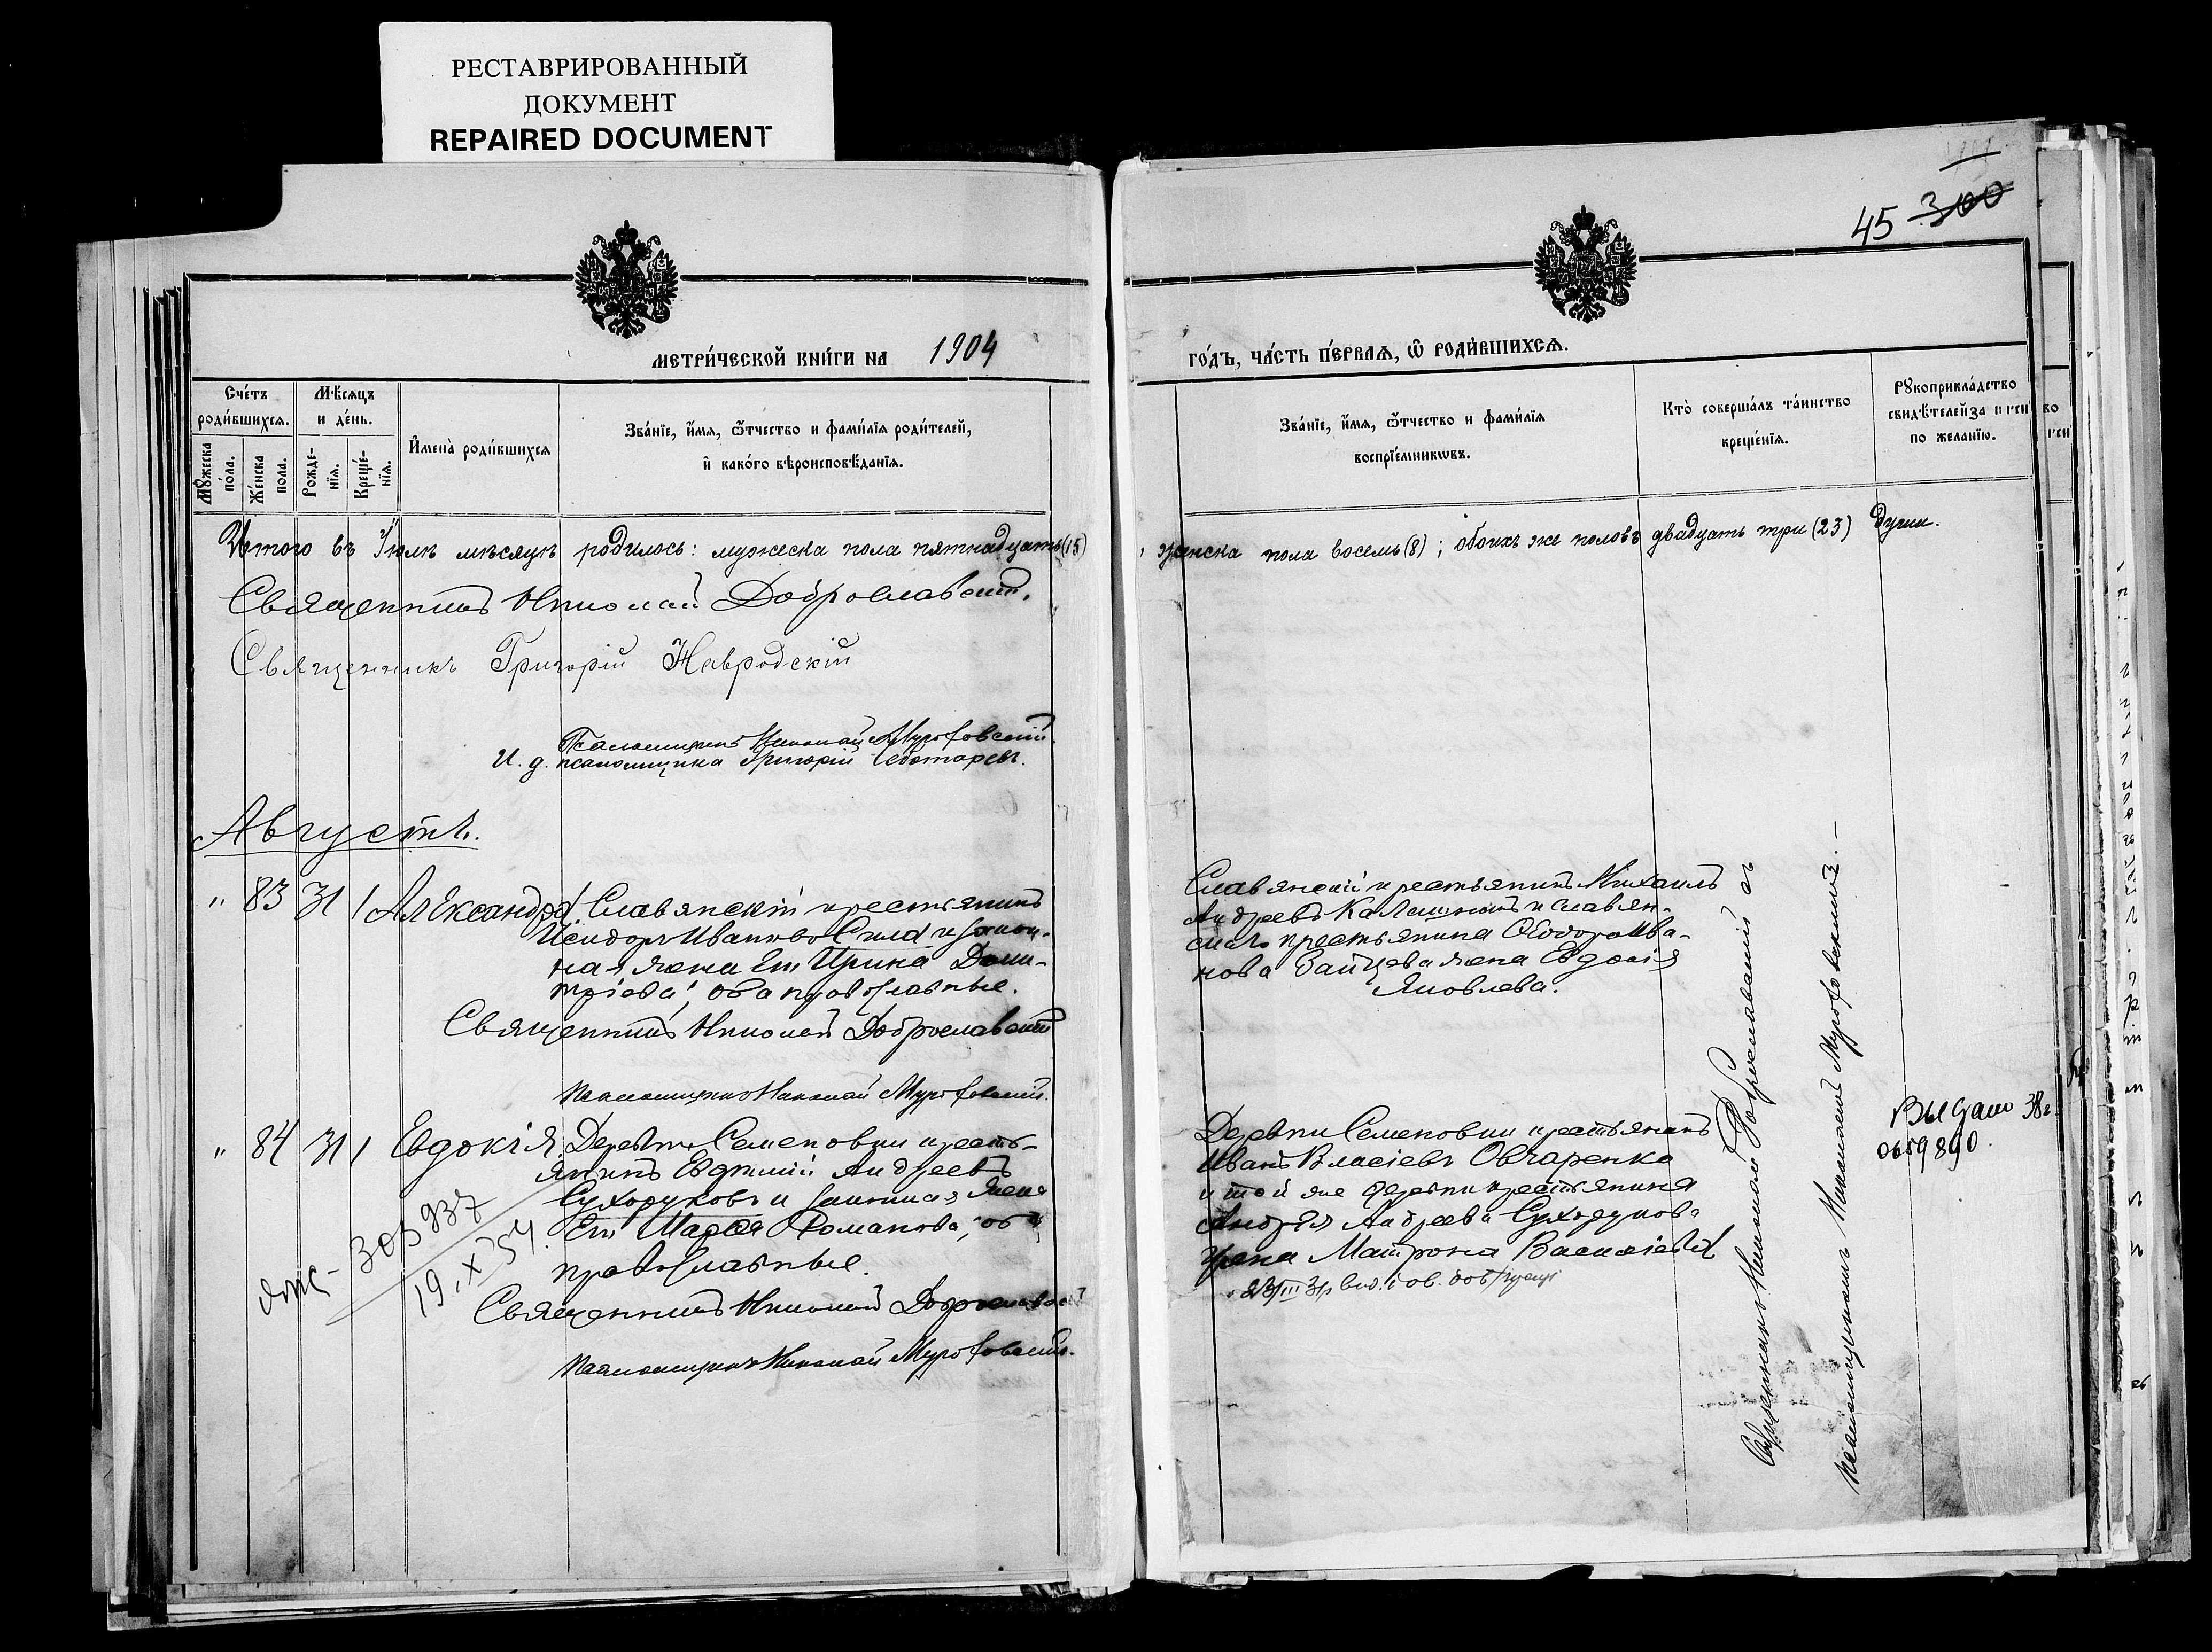 РЕСТАВРИРОВАННЫЙ
ДОКУМЕНТ
REPAIRED DOCUMENT
45 300
МЕТРИ́ЧЕСКОЙ КНИ́ГИ НА 1904
ГО́ДЪ, ЧА́СТЬ ПЕ́РВАѦ, Ѡ҆ РОДИ́ВШИХСѦ.
Сче́тъ роди́вшихсѧ.
Мꙋ́жеска по́ла.
Же́нска пола.
Мѣ́сѧцъ и де́нь.
Рожде-нїѧ.
Креще́-нїѧ.
И҆мена̀ роди́вшихсѧ
Зва́нїе, и҆́мѧ, ѻ҆́тчество и фами́лїѧ роди́телей,
и҆ како́го вѣроисповѣ́данїѧ.
Зва́нїе, и҆́мѧ, ѻ҆́тчество и фами́лїѧ
воспрїе́мникѡвъ.
Кто̀ соверша́лъ та́инство
креще́нїѧ.
Рꙋкоприкла́дство
свидѣ́телей за
по жела́нїю.
Итого въ Іюлѣ мѣсяцѣ родилось: мужеска пола пятнадцать (15)
женска пола восемь (8); обоихъ же половъ двадцать три (23) души.
Священникъ Николай Доброславскій.
Священникъ Григорій Навродскій
Псаломщикъ Николай Мурофовскій.
И. д. псаломщика Григорій Чеботаревъ.
Августъ.
" 83 31 1 Александра. Славянскій крестьянинъ
Исидоръ Ивановъ Сила и закон-
ная жена его Ирина Дими-
тріева, оба православные.
Священникъ Николай Доброславскій
Псаломщикъ Николай Мурофовскій.
Славянскій крестьянинъ Михаилъ
Андреевъ Калашникъ и славян-
скаго крестьянина Ѳеодора Ива-
нова Зайцева жена Евдокія
Яковлева.
" 84 31 1 Евдокія. Деревни Семеновки кресть-
янинъ Евфимій Андреевъ
Сухоруковъ и законная жена
Его Марія Романова, оба
православные.
Священникъ Николай Доброславскій
Псаломщикъ Николай Мурофовскій.
303937
19.X 54.
Деревни Семеновки крестьянинъ
Иванъ Власіевъ Овчаренко
и той же деревни крестьянина
Андрея Андреева Сухорукова
жена Матрона Василіева
23/III 31
Священникъ Николай Доброславскій съ
псаломщикомъ Николаемъ Мурофовскимъ.—
Выдано 38г.
0659890.